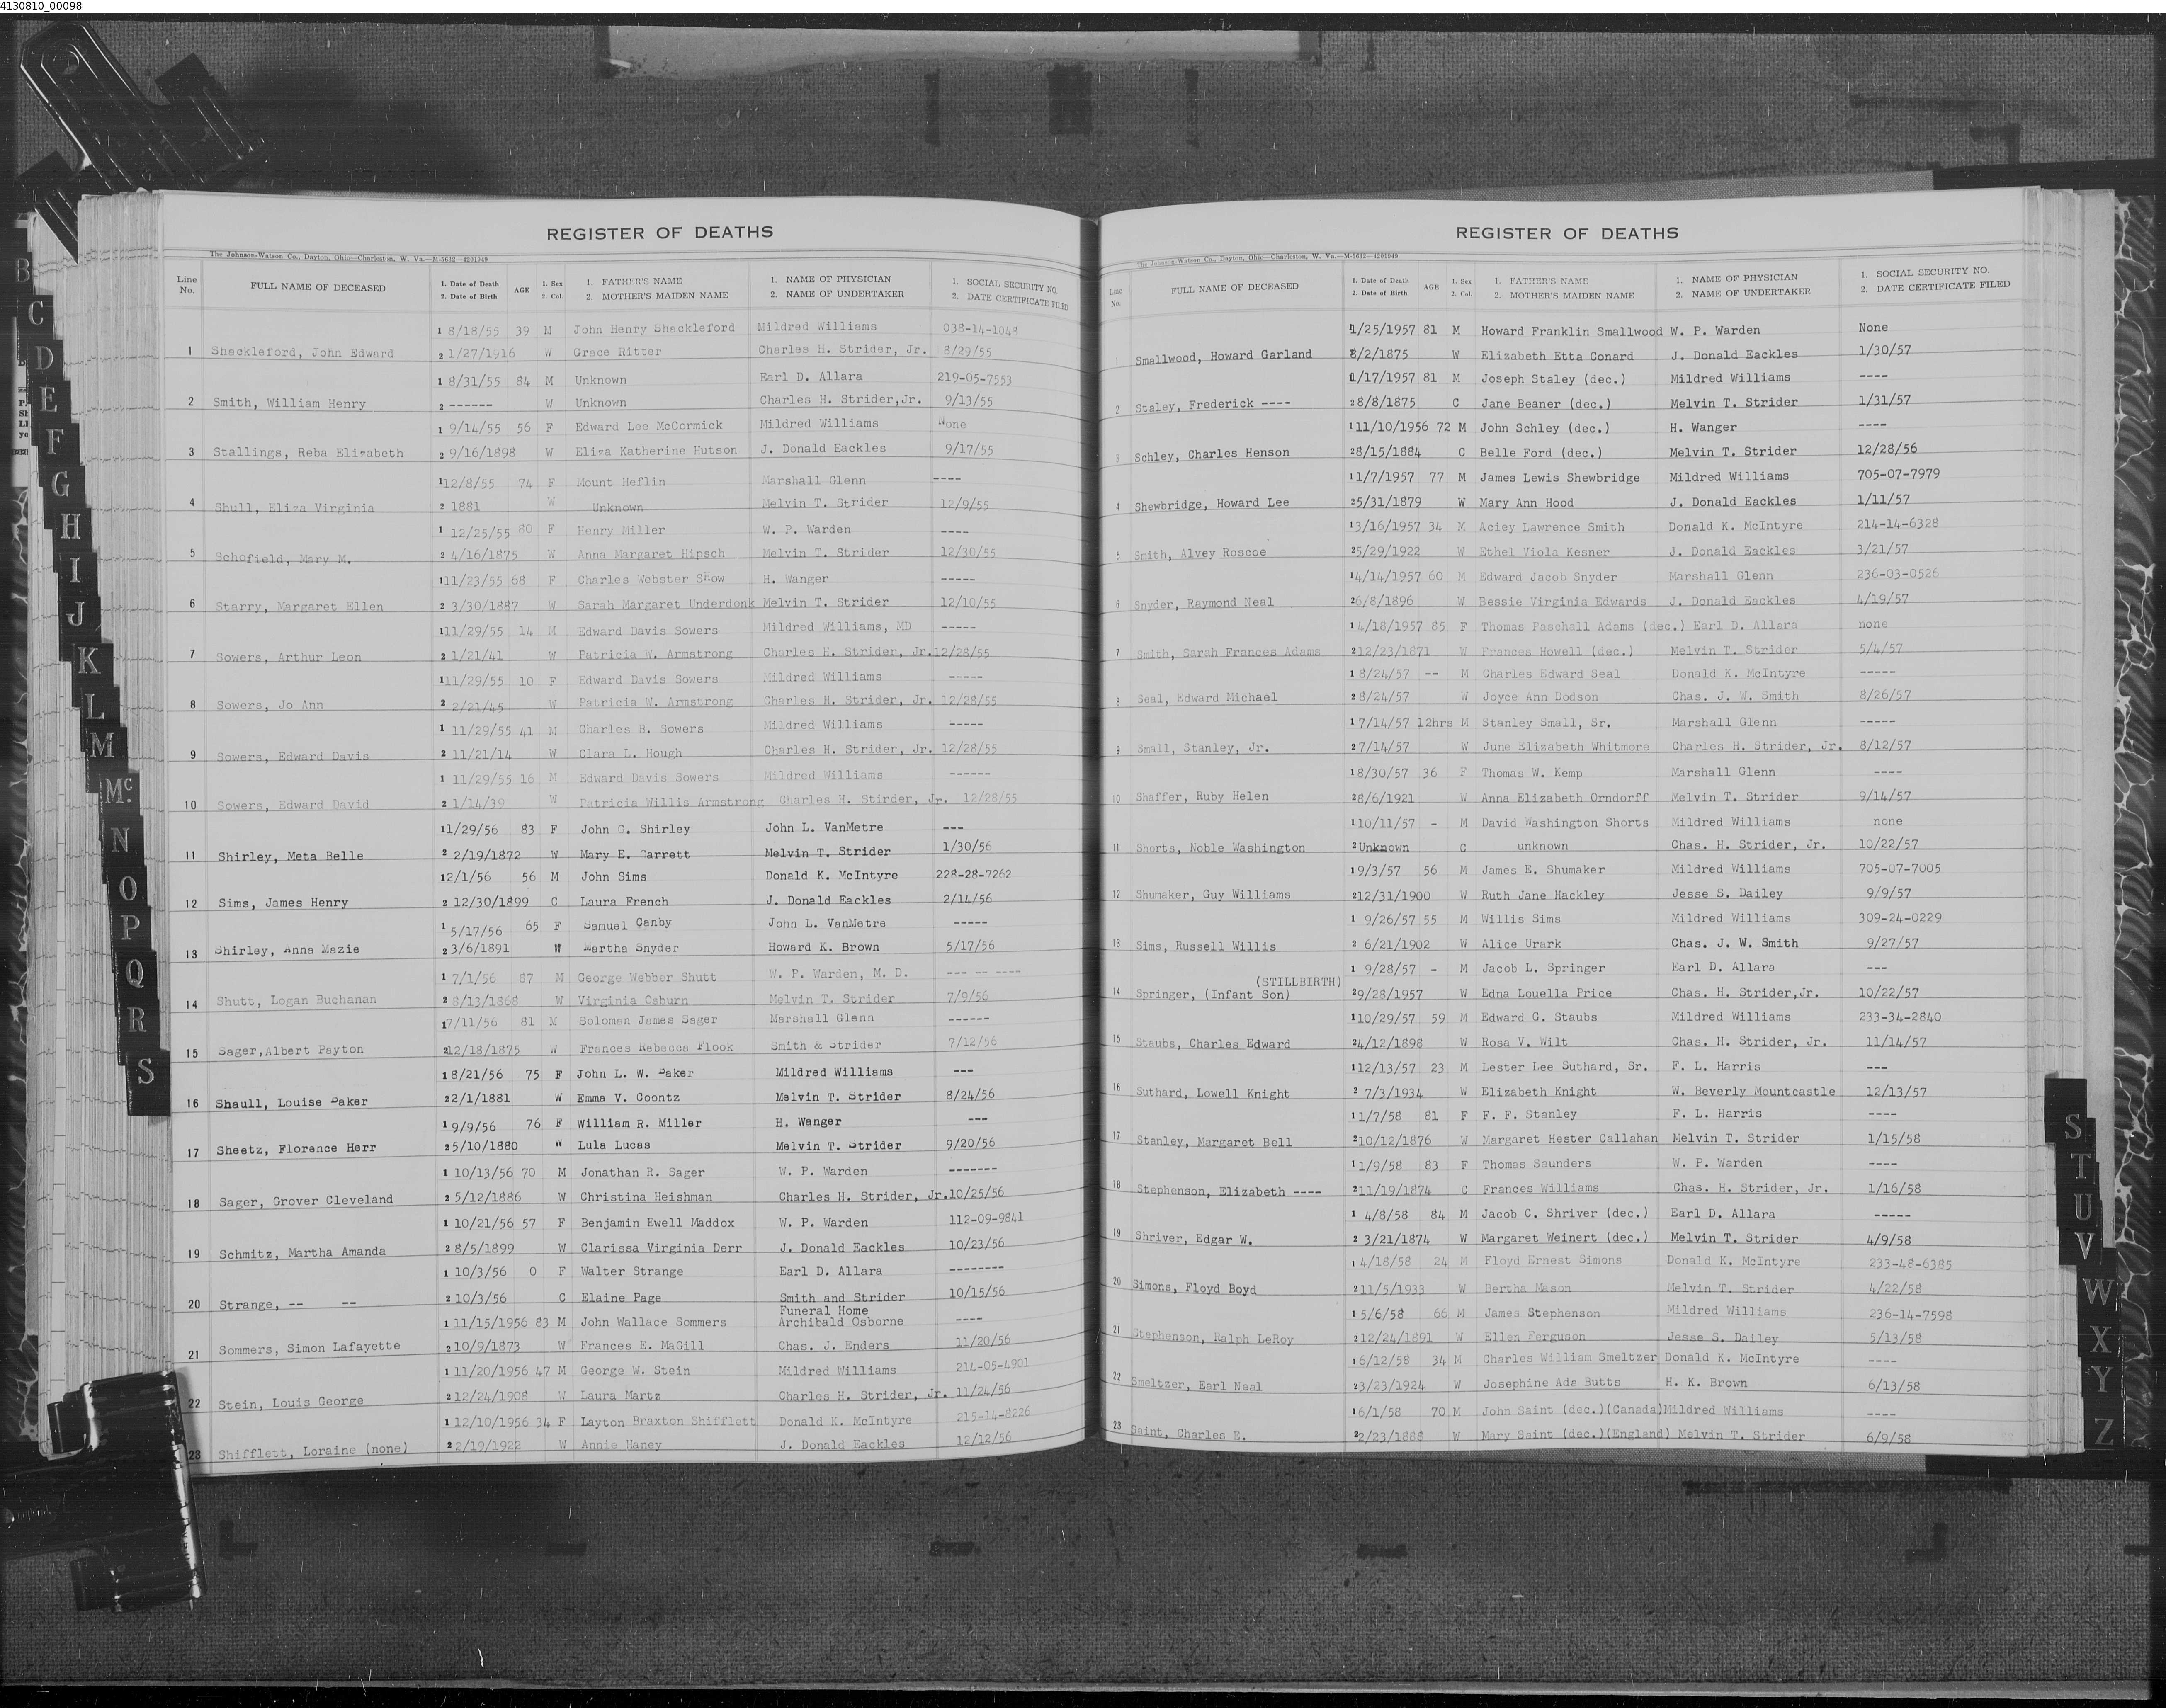 4130810_00098
REGISTER OF DEATHS
The Johnson-Watson Co., Dayton, Ohio—Charleston, W. Va.—M-5632—4201949
Line No. FULL NAME OF DECEASED 1. Date of Death 2. Date of Birth AGE 1. Sex 2. Col. 1. FATHER'S NAME 2. MOTHER'S MAIDEN NAME 1. NAME OF PHYSICIAN 2. NAME OF UNDERTAKER 1. SOCIAL SECURITY NO. 2. DATE CERTIFICATE FILED
1 8/18/55 39 M John Henry Shackleford Mildred Williams 038-14-1048
1 Shackleford, John Edward 2 1/27/1916 W Grace Ritter Charles H. Strider, Jr. 8/29/55
1 8/31/55 84 M Unknown Earl D. Allara 219-05-7553
2 Smith, William Henry 2 ------ W Unknown Charles H. Strider,Jr. 9/13/55
1 9/14/55 56 F Edward Lee McCormick Mildred Williams None
3 Stallings, Reba Elizabeth 2 9/16/1898 W Eliza Katherine Hutson J. Donald Eackles 9/17/55
1 12/8/55 74 F Mount Heflin Marshall Glenn ----
4 Shull, Eliza Virginia 2 1881 W Unknown Melvin T. Strider 12/9/55
1 12/25/55 80 F Henry Miller W. P. Warden ----
5 Schofield, Mary M. 2 4/16/1875 W Anna Margaret Hipsch Melvin T. Strider 12/30/55
1 11/23/55 68 F Charles Webster Show H. Wanger -----
6 Starry, Margaret Ellen 2 3/30/1887 W Sarah Margaret Underdonk Melvin T. Strider 12/10/55
1 11/29/55 14 M Edward Davis Sowers Mildred Williams, MD -----
7 Sowers, Arthur Leon 2 1/21/41 W Patricia W. Armstrong Charles H. Strider, Jr. 12/28/55
1 11/29/55 10 F Edward Davis Sowers Mildred Williams -----
8 Sowers, Jo Ann 2 2/21/45 W Patricia W. Armstrong Charles H. Strider, Jr. 12/28/55
1 11/29/55 41 M Charles B. Sowers Mildred Williams -----
9 Sowers, Edward Davis 2 11/21/14 W Clara L. Hough Charles H. Strider, Jr. 12/28/55
1 11/29/55 16 M Edward Davis Sowers Mildred Williams ------
10 Sowers, Edward David 2 1/14/39 W Patricia Willis Armstrong Charles H. Stirder, Jr. 12/28/55
1 1/29/56 83 F John G. Shirley John L. VanMetre ---
11 Shirley, Meta Belle 2 2/19/1872 W Mary E. Garrett Melvin T. Strider 1/30/56
1 2/1/56 56 M John Sims Donald K. McIntyre 228-28-7262
12 Sims, James Henry 2 12/30/1899 C Laura French J. Donald Eackles 2/14/56
1 5/17/56 65 F Samuel Canby John L. VanMetre -----
13 Shirley, Anna Mazie 2 3/6/1891 W Martha Snyder Howard K. Brown 5/17/56
1 7/1/56 87 M George Webber Shutt W. P. Warden, M. D. --- -- ----
14 Shutt, Logan Buchanan 2 8/13/1868 W Virginia Osburn Melvin T. Strider 7/9/56
1 7/11/56 81 M Soloman James Sager Marshall Glenn ------
15 Sager,Albert Payton 2 12/18/1875 W Frances Rebecca Flook Smith & Strider 7/12/56
1 8/21/56 75 F John L. W. Baker Mildred Williams ---
16 Shaull, Louise Baker 2 2/1/1881 W Emma V. Coontz Melvin T. Strider 8/24/56
1 9/9/56 76 F William R. Miller H. Wanger ---
17 Sheetz, Florence Herr 2 5/10/1880 W Lula Lucas Melvin T. Strider 9/20/56
1 10/13/56 70 M Jonathan R. Sager W. P. Warden -------
18 Sager, Grover Cleveland 2 5/12/1886 W Christina Heishman Charles H. Strider, Jr. 10/25/56
1 10/21/56 57 F Benjamin Ewell Maddox W. P. Warden 112-09-9841
19 Schmitz, Martha Amanda 2 8/5/1899 W Clarissa Virginia Derr J. Donald Eackles 10/23/56
1 10/3/56 0 F Walter Strange Earl D. Allara --------
20 Strange, -- -- 2 10/3/56 C Elaine Page Smith and Strider 10/15/56
Funeral Home
1 11/15/1956 83 M John Wallace Sommers Archibald Osborne ----
21 Sommers, Simon Lafayette 2 10/9/1873 W Frances E. MaGill Chas. J. Enders 11/20/56
1 11/20/1956 47 M George W. Stein Mildred Williams 214-05-4901
22 Stein, Louis George 2 12/24/1908 W Laura Martz Charles H. Strider, Jr. 11/24/56
1 12/10/1956 34 F Layton Braxton Shifflett Donald K. McIntyre 215-14-8226
23 Shifflett, Loraine (none) 2 2/19/1922 W Annie Haney J. Donald Eackles 12/12/56
REGISTER OF DEATHS
The Johnson-Watson Co., Dayton, Ohio—Charleston, W. Va.—M-5632—4201949
Line No. FULL NAME OF DECEASED 1. Date of Death 2. Date of Birth AGE 1. Sex 2. Col. 1. FATHER'S NAME 2. MOTHER'S MAIDEN NAME 1. NAME OF PHYSICIAN 2. NAME OF UNDERTAKER 1. SOCIAL SECURITY NO. 2. DATE CERTIFICATE FILED
1/25/1957 81 M Howard Franklin Smallwood W. P. Warden None
1 Smallwood, Howard Garland 8/2/1875 W Elizabeth Etta Conard J. Donald Eackles 1/30/57
1/17/1957 81 M Joseph Staley (dec.) Mildred Williams ----
2 Staley, Frederick ---- 2 8/8/1875 C Jane Beaner (dec.) Melvin T. Strider 1/31/57
1 11/10/1956 72 M John Schley (dec.) H. Wanger ----
3 Schley, Charles Henson 2 8/15/1884 C Belle Ford (dec.) Melvin T. Strider 12/28/56
1 1/7/1957 77 M James Lewis Shewbridge Mildred Williams 705-07-7979
4 Shewbridge, Howard Lee 2 5/31/1879 W Mary Ann Hood J. Donald Eackles 1/11/57
1 3/16/1957 34 M Aciey Lawrence Smith Donald K. McIntyre 214-14-6328
5 Smith, Alvey Roscoe 2 5/29/1922 W Ethel Viola Kesner J. Donald Eackles 3/21/57
1 4/14/1957 60 M Edward Jacob Snyder Marshall Glenn 236-03-0526
6 Snyder, Raymond Neal 2 6/8/1896 W Bessie Virginia Edwards J. Donald Eackles 4/19/57
1 4/18/1957 85 F Thomas Paschall Adams (dec.) Earl D. Allara none
7 Smith, Sarah Frances Adams 2 12/23/1871 W Frances Howell (dec.) Melvin T. Strider 5/4/57
1 8/24/57 -- M Charles Edward Seal Donald K. McIntyre -----
8 Seal, Edward Michael 2 8/24/57 W Joyce Ann Dodson Chas. J. W. Smith 8/26/57
1 7/14/57 12hrs M Stanley Small, Sr. Marshall Glenn -----
9 Small, Stanley, Jr. 2 7/14/57 W June Elizabeth Whitmore Charles H. Strider, Jr. 8/12/57
1 8/30/57 36 F Thomas W. Kemp Marshall Glenn ----
10 Shaffer, Ruby Helen 2 8/6/1921 W Anna Elizabeth Orndorff Melvin T. Strider 9/14/57
1 10/11/57 - M David Washington Shorts Mildred Williams none
11 Shorts, Noble Washington 2 Unknown C unknown Chas. H. Strider, Jr. 10/22/57
1 9/3/57 56 M James E. Shumaker Mildred Williams 705-07-7005
12 Shumaker, Guy Williams 2 12/31/1900 W Ruth Jane Hackley Jesse S. Dailey 9/9/57
1 9/26/57 55 M Willis Sims Mildred Williams 309-24-0229
13 Sims, Russell Willis 2 6/21/1902 W Alice Urark Chas. J. W. Smith 9/27/57
1 9/28/57 - M Jacob L. Springer Earl D. Allara ---
(STILLBIRTH)
14 Springer, (Infant Son) 2 9/28/1957 W Edna Louella Price Chas. H. Strider,Jr. 10/22/57
1 10/29/57 59 M Edward G. Staubs Mildred Williams 233-34-2840
15 Staubs, Charles Edward 2 4/12/1898 W Rosa V. Wilt Chas. H. Strider, Jr. 11/14/57
1 12/13/57 23 M Lester Lee Suthard, Sr. F. L. Harris ---
16 Suthard, Lowell Knight 2 7/3/1934 W Elizabeth Knight W. Beverly Mountcastle 12/13/57
1 1/7/58 81 F F. F. Stanley F. L. Harris ----
17 Stanley, Margaret Bell 2 10/12/1876 W Margaret Hester Callahan Melvin T. Strider 1/15/58
1 1/9/58 83 F Thomas Saunders W. P. Warden ----
18 Stephenson, Elizabeth ---- 2 11/19/1874 C Frances Williams Chas. H. Strider, Jr. 1/16/58
1 4/8/58 84 M Jacob C. Shriver (dec.) Earl D. Allara -----
19 Shriver, Edgar W. 2 3/21/1874 W Margaret Weinert (dec.) Melvin T. Strider 4/9/58
1 4/18/58 24 M Floyd Ernest Simons Donald K. McIntyre 233-48-6385
20 Simons, Floyd Boyd 2 11/5/1933 W Bertha Mason Melvin T. Strider 4/22/58
1 5/6/58 66 M James Stephenson Mildred Williams 236-14-7598
21 Stephenson, Ralph LeRoy 2 12/24/1891 W Ellen Ferguson Jesse S. Dailey 5/13/58
1 6/12/58 34 M Charles William Smeltzer Donald K. McIntyre ----
22 Smeltzer, Earl Neal 2 3/23/1924 W Josephine Ada Butts H. K. Brown 6/13/58
1 6/1/58 70 M John Saint (dec.)(Canada) Mildred Williams ----
23 Saint, Charles E. 2 2/23/1888 W Mary Saint (dec.)(England) Melvin T. Strider 6/9/58
B
C
D
E
F
G
H
I
J
K
L
M
Mc.
N
O
P
Q
R
S
S
T
U
V
W
X
Y
Z